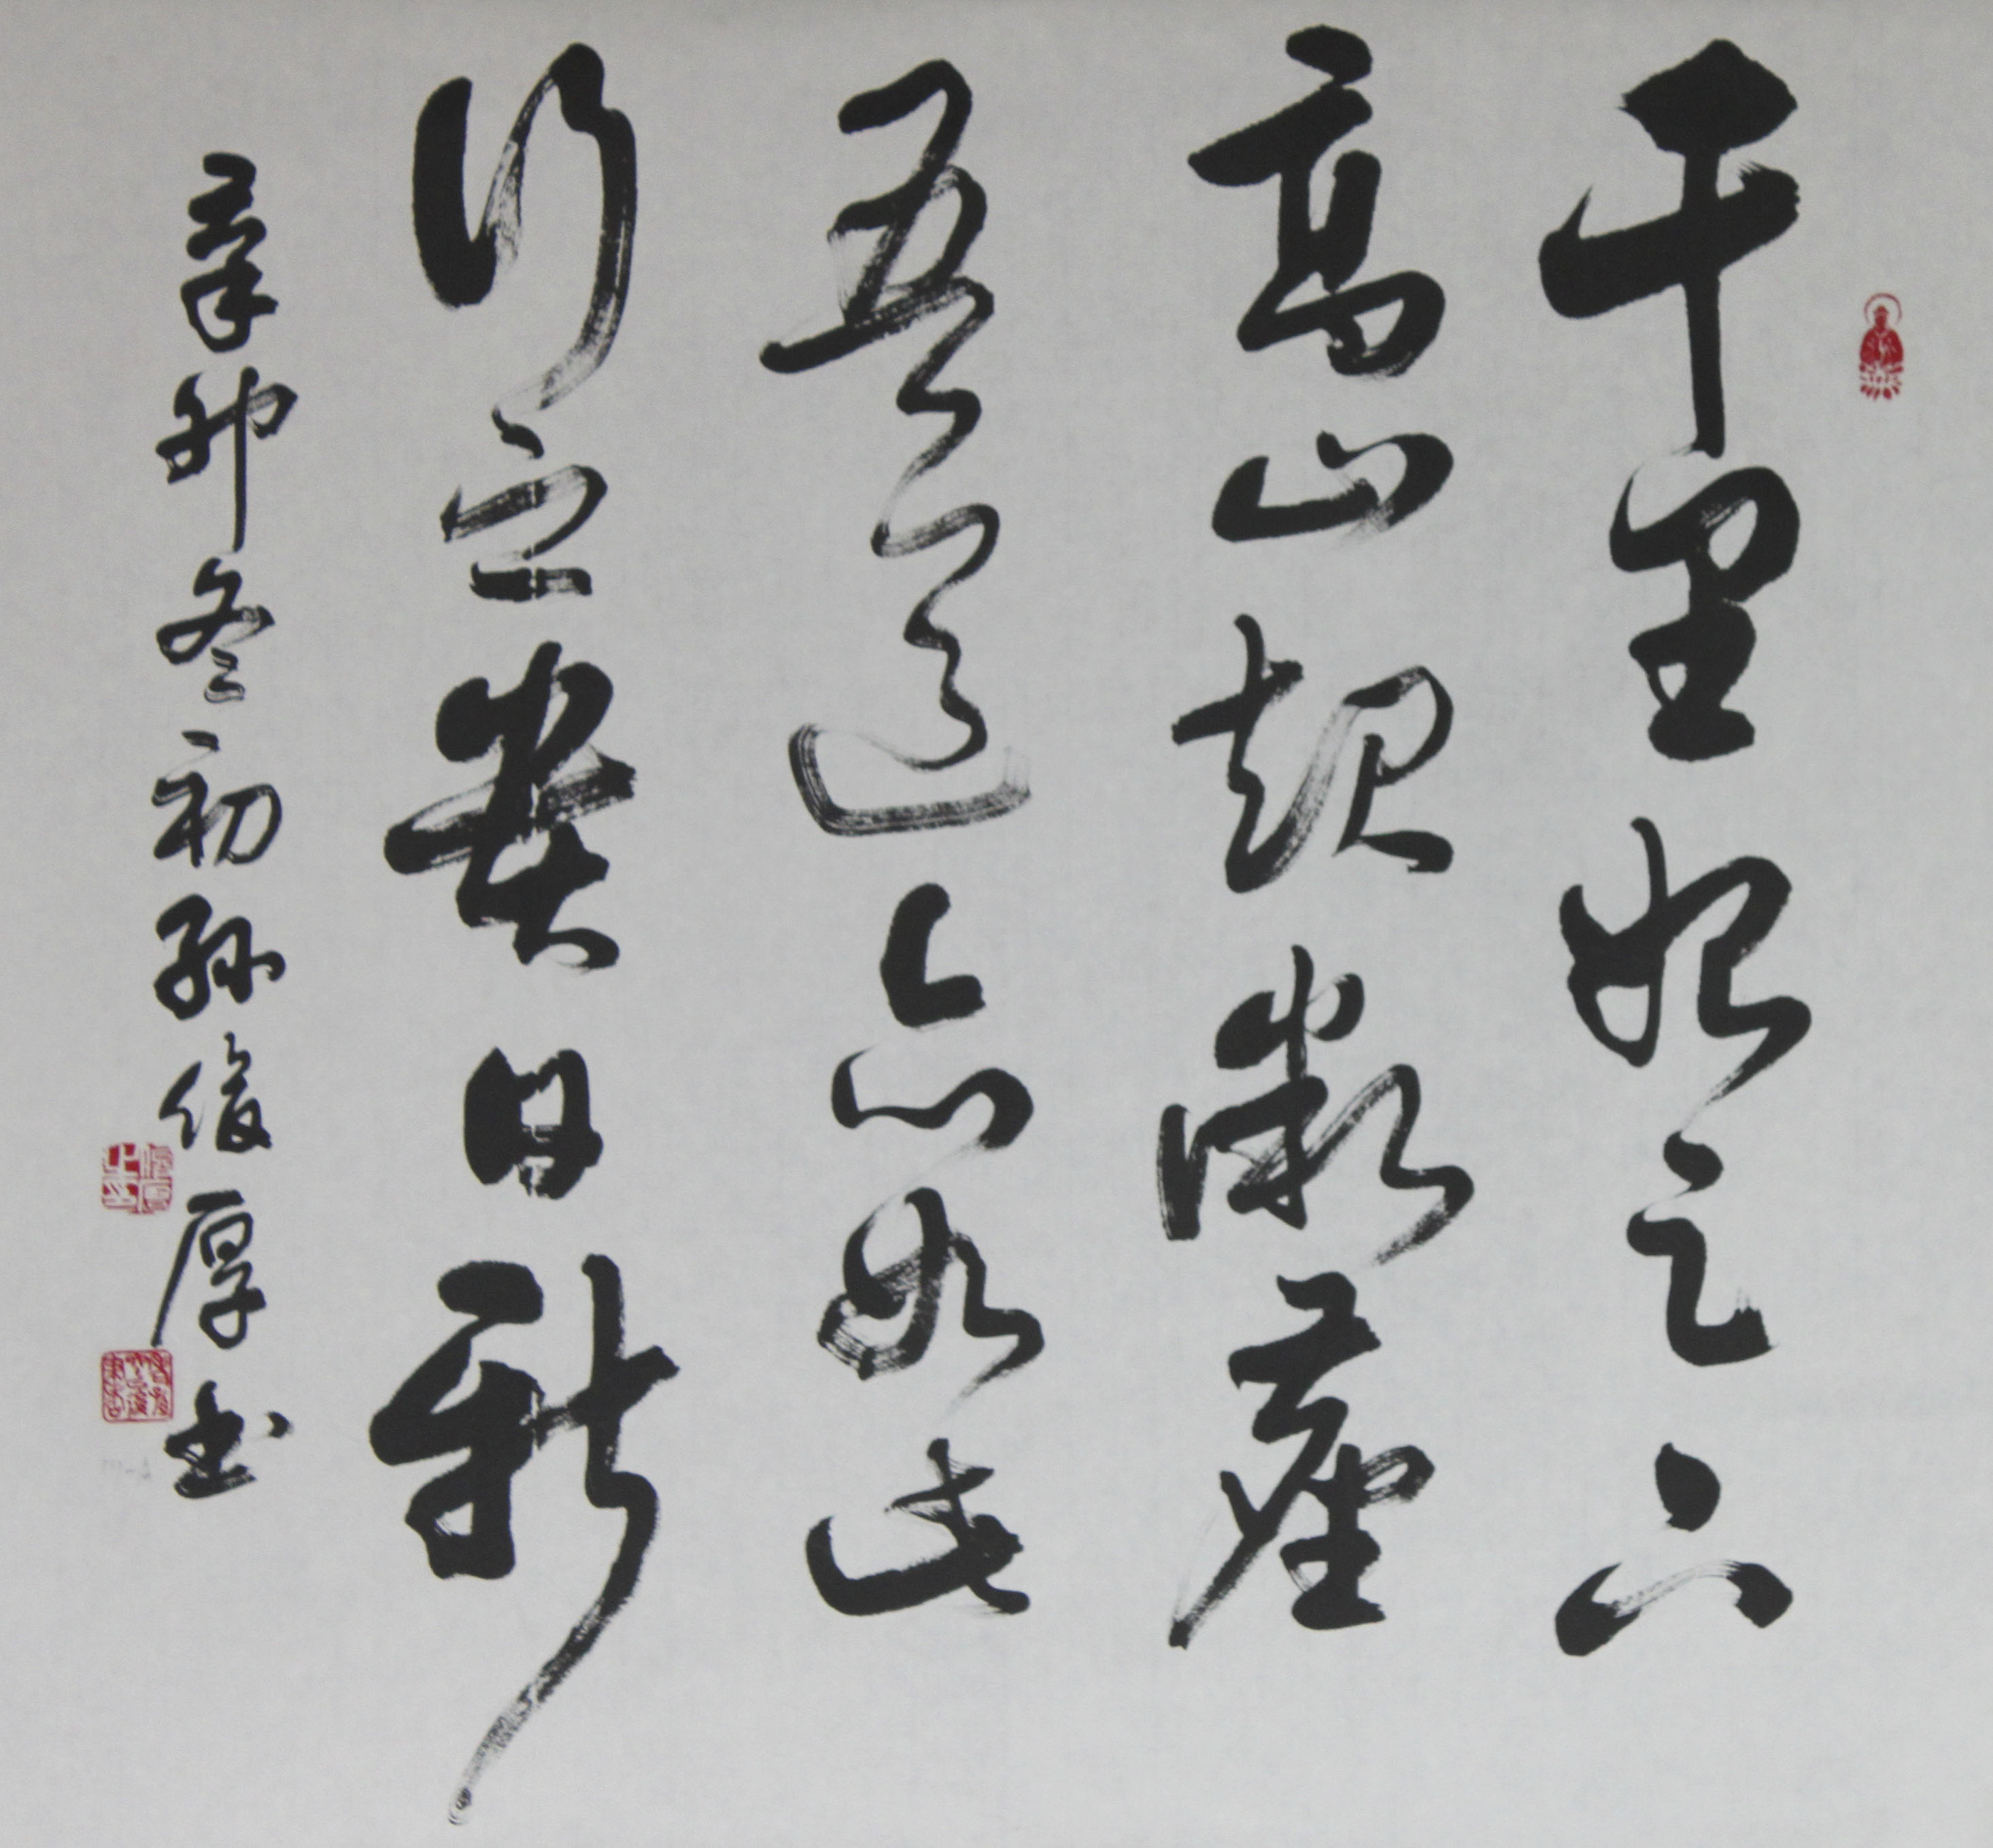 千里始足下
高山起微塵
吾道亦如此
行之貴日新
辛卯冬初孫俊厚書